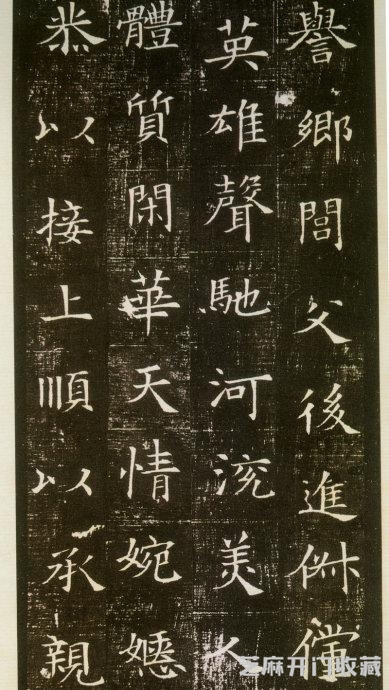 譽鄉閭父後進俶儻
英雄聲馳河渷美人
體質閑華天情婉嫕
恭以接上順以承親
芝麻开门收藏